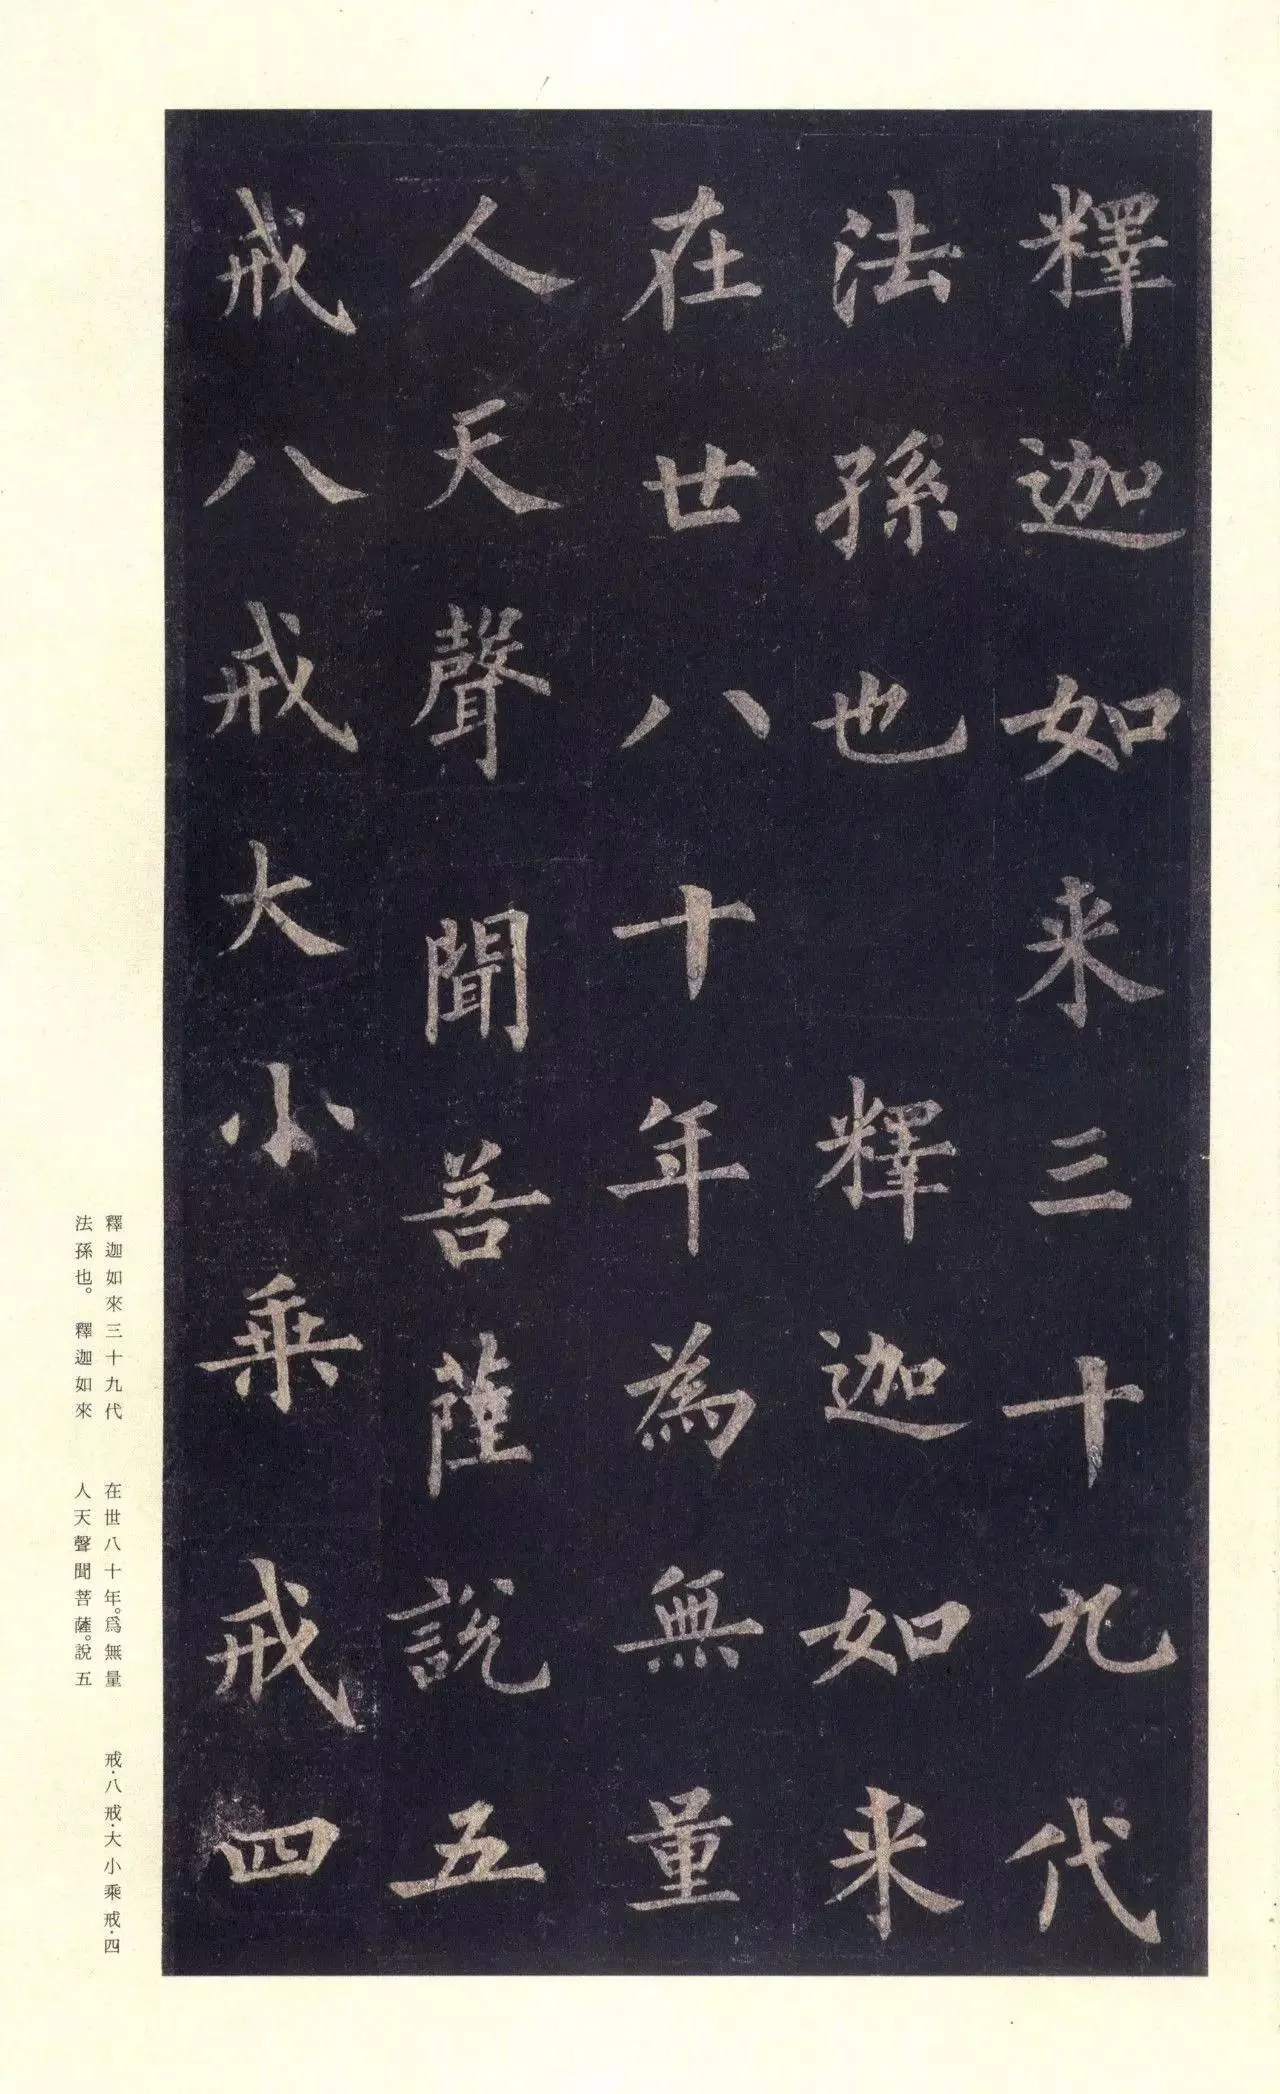 釋迦如来三十九代
法孫也　釋迦如来
在世八十年為無量
人天聲聞菩薩說五
戒八戒大小乘戒四
釋迦如來三十九代
法孫也。釋迦如來
在世八十年。爲無量
人天聲聞菩薩。說五
戒·八戒·大小乘戒·四